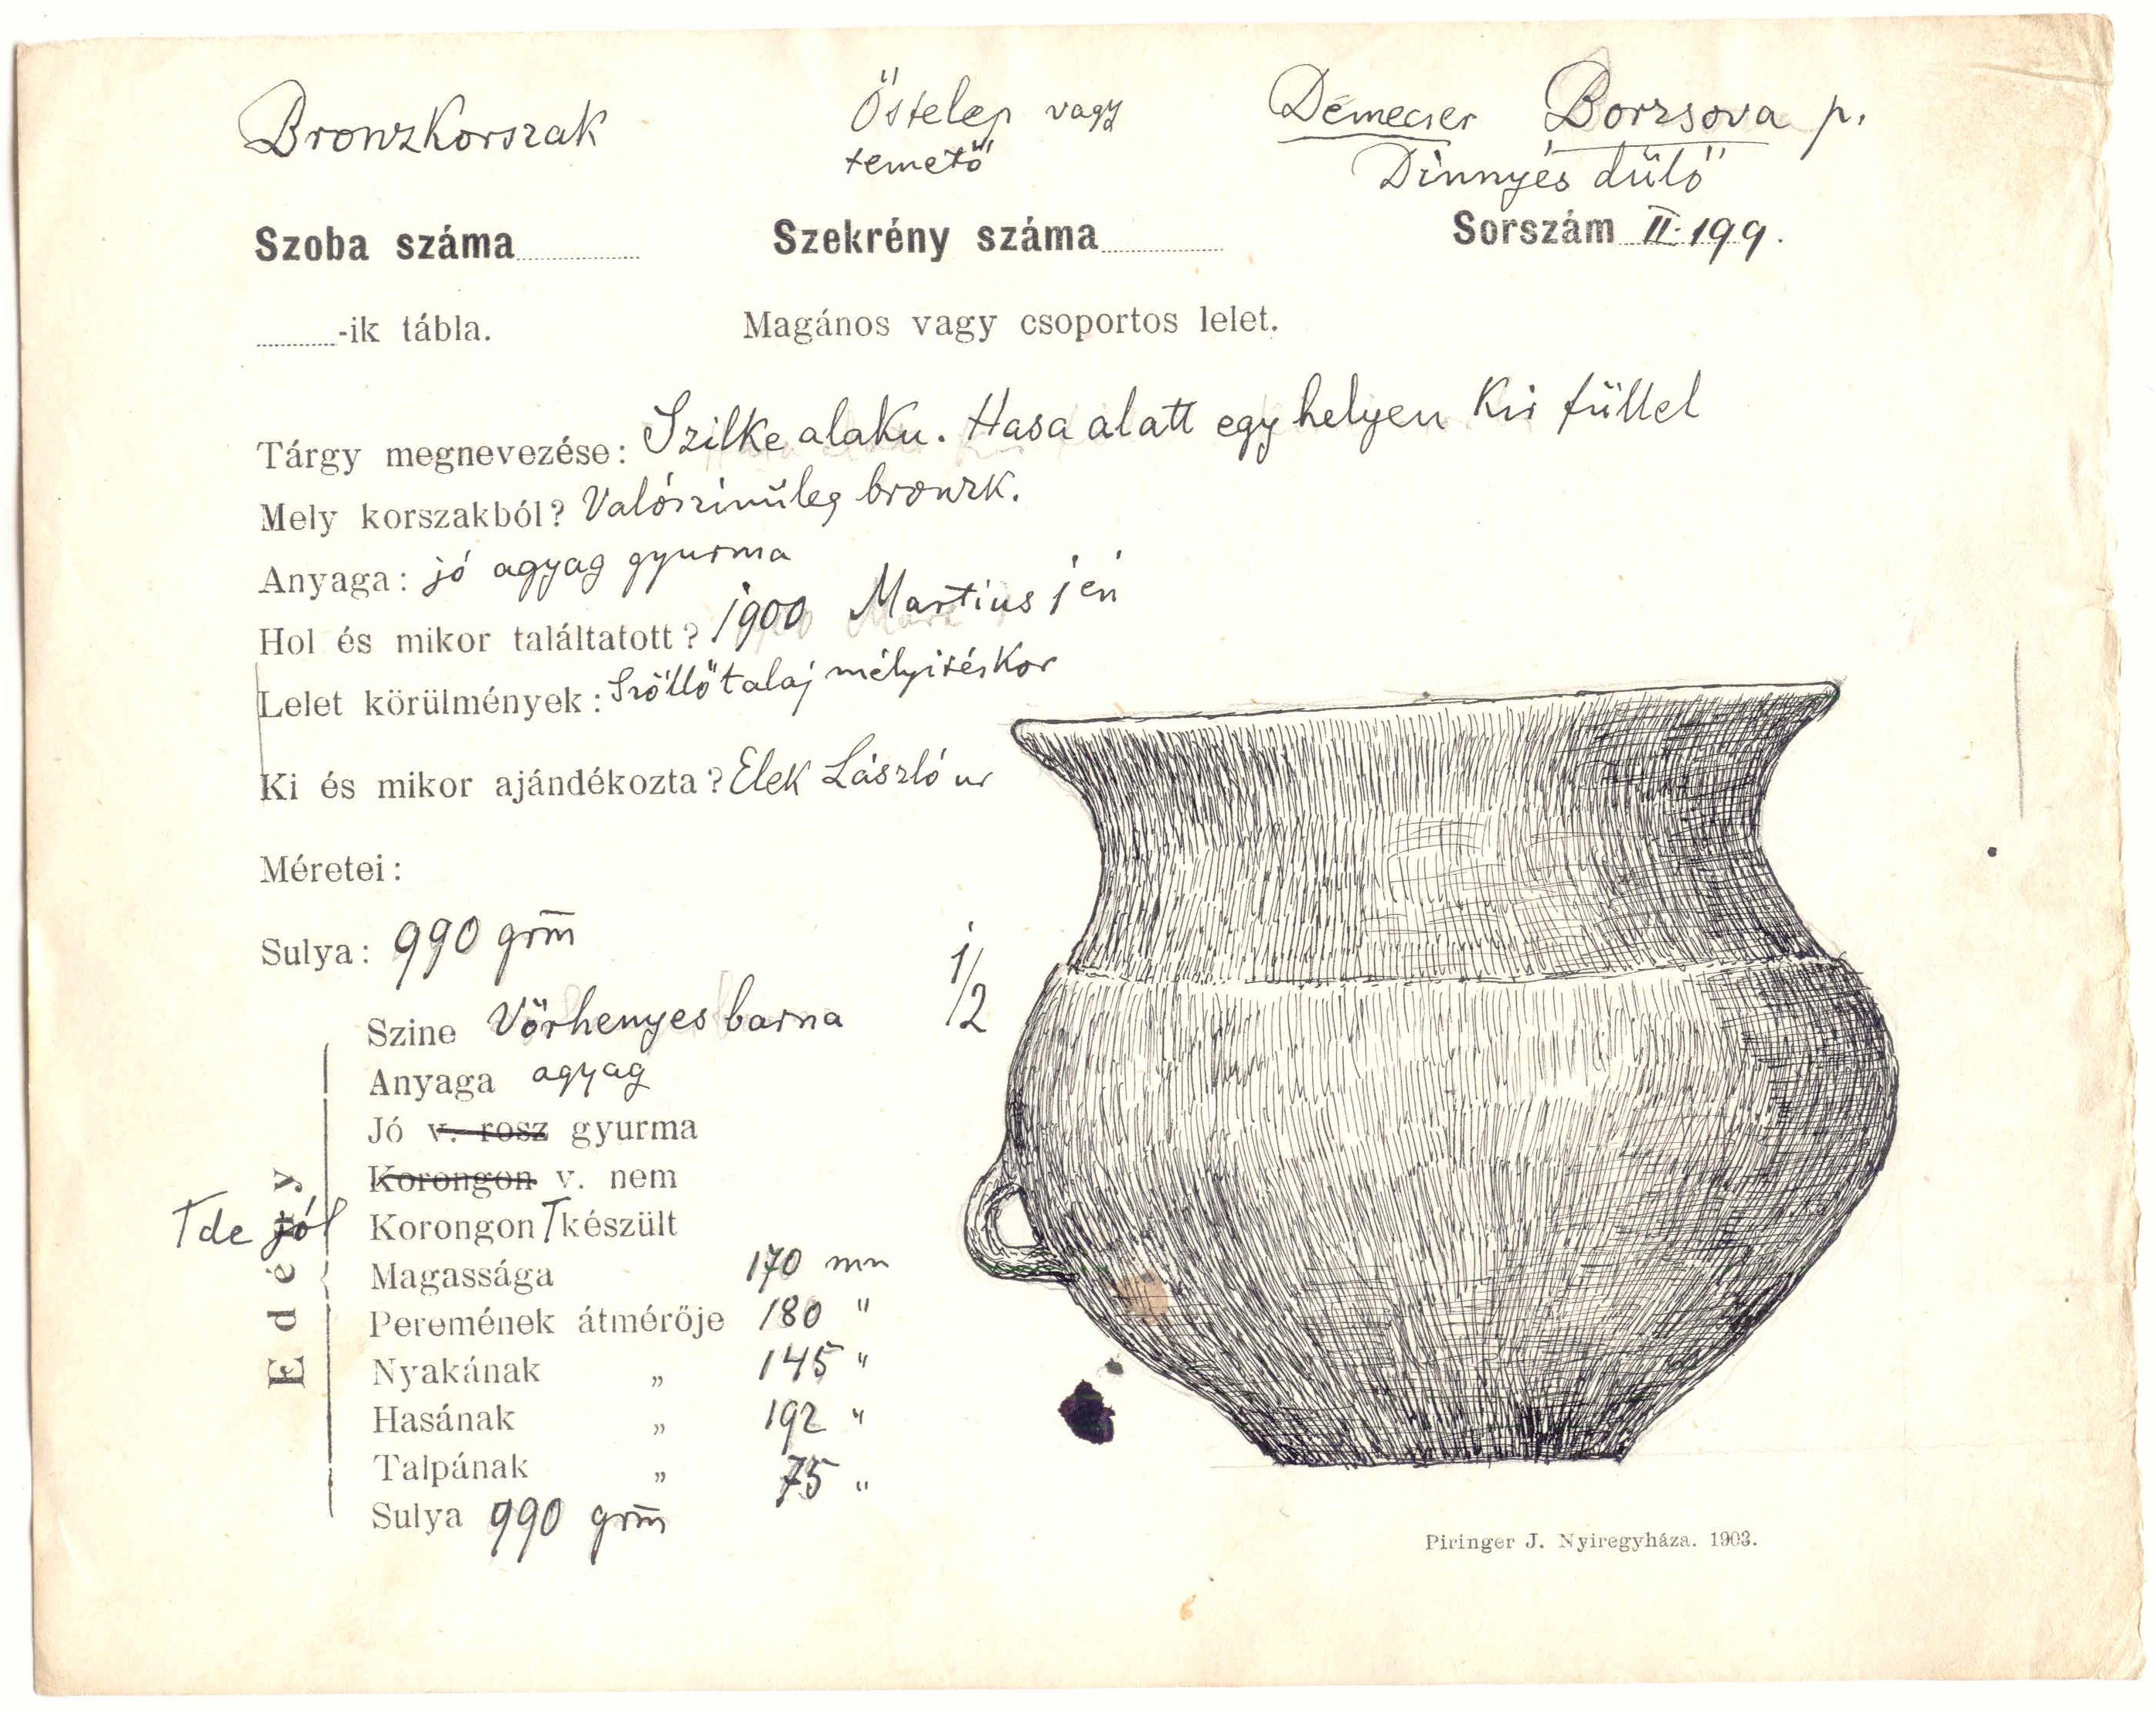 Bronzkorszak
Őstelep vagy
temető
Demecser Borzsova p.
Dinnyés dűlő
Szoba száma
Szekrény száma
Sorszám II. 199.
-ik tábla.
Magános vagy csoportos lelet.
Tárgy megnevezése: Szilke alaku. Hasa alatt egy helyen kis füllel
Mely korszakból? Valószinűleg bronzk.
Anyaga: jó agyag gyurma
Hol és mikor találtatott? 1900 Martius 1 én
Lelet körülmények: Szőllőtalaj mélyitéskor
Ki és mikor ajándékozta? Elek László ur
Méretei:
Sulya: 990 grm
1/2
Edény
Szine Vörhenyes barna
Anyaga agyag
Jó v. rosz gyurma
Korongon v. nem
T de jól
Korongon T készült
Magassága 170 mm
Peremének átmérője 180 "
Nyakának „ 145 "
Hasának „ 192 "
Talpának „ 75 "
Sulya 990 grm
Piringer J. Nyiregyháza. 1903.